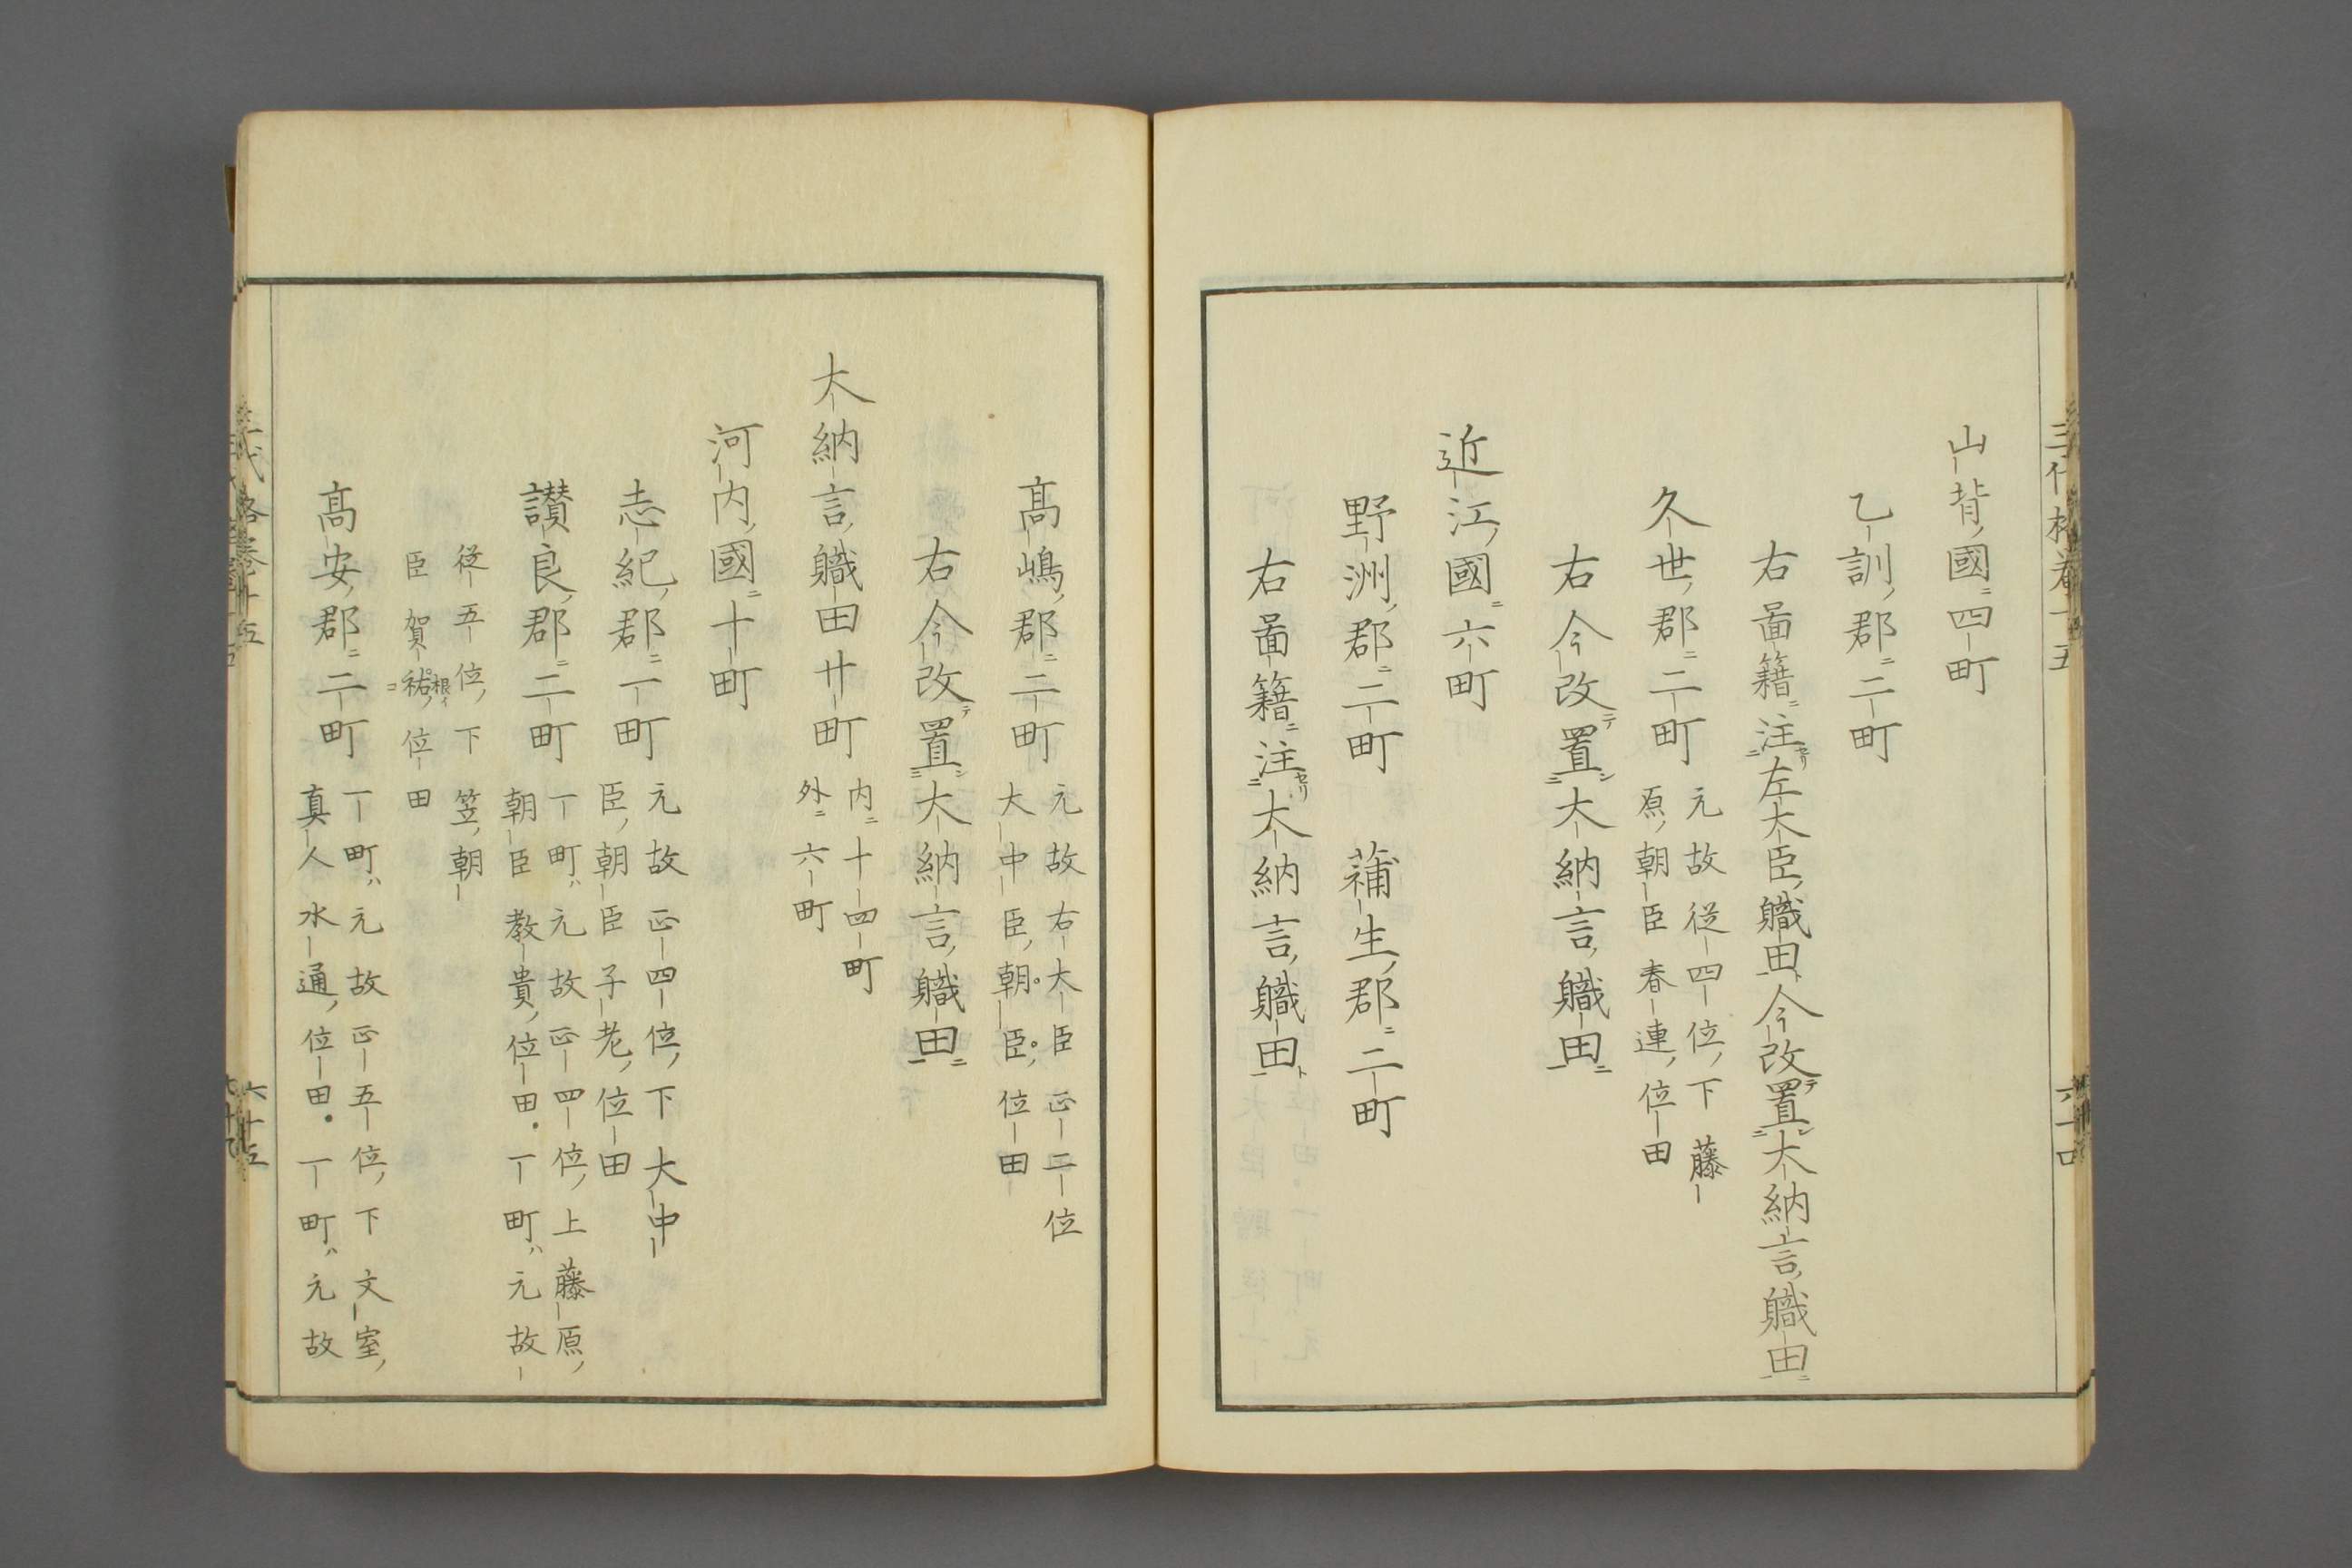 山背國四町
乙訓郡二町
右啚籍注左大臣職田今改置大納言職田
久世郡二町 元故従四位下藤
原朝臣春連位田
右今改置大納言職田
近江國六町
野洲郡二町 蒲生郡二町
右啚籍注大納言職田
高嶋郡二町 元故右大臣正二位
大中臣朝臣位田
右今改置大納言職田
大納言職田廿町 内十四町
外六町
河内國十町
志紀郡一町 元故正四位下大中
臣朝臣子老位田
讃良郡二町 一町元故正四位上藤原
朝臣教貴位田一町元故
従五位下笠朝
臣賀祐位田
高安郡二町 一町元故正五位下文室
真人水通位田一町元故